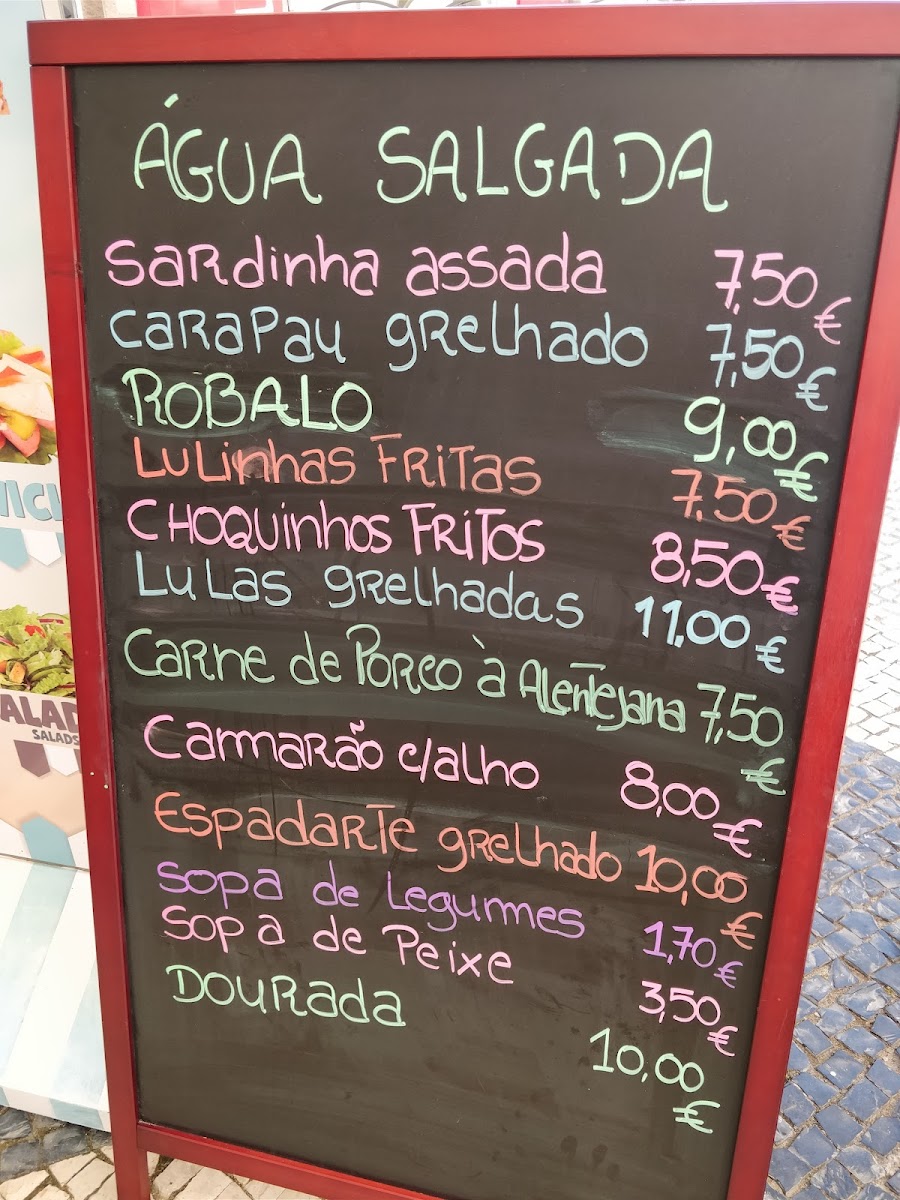 ÁGUA SALGADA
Sardinha assada 7,50 €
Carapau grelhado 7,50 €
ROBALO 9,00 €
Lulinhas Fritas 7,50 €
CHOQuinhos FRITOS 8,50 €
Lulas grelhadas 11,00 €
Carne de Porco à Alentejana 7,50 €
Camarão c/alho 8,00 €
Espadarte grelhado 10,00 €
Sopa de Legumes 1,70 €
Sopa de Peixe 3,50 €
DOURADA 10,00 €
SALADS